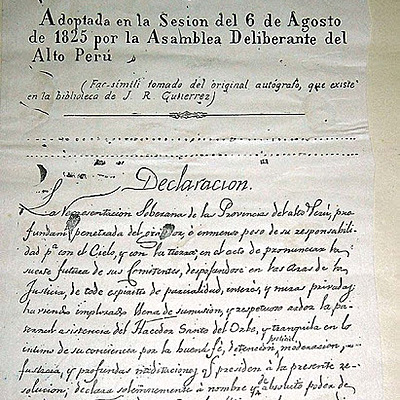 Adoptada en la Sesion del 6 de Agosto
de 1825 por la Asamblea Deliberante del
Alto Perú
(Fac-símili tomado del original autógrafo, que existe
en la biblioteca de J. R. Gutierrez)
Declaracion.
La Representacion Soberana de las Provincias del alto Perú, pro
fundam.te penetrada del grandor, é inmenso peso de su responsabili
dad p.a con el Cielo, y con la tierra, en el acto de pronunciar la
suerte futura de sus Comitentes, despojandose en las Aras de la
Justicia, de todo espiritu de parcialidad, interes, y miras privadas
haviendo implorado, llena de sumision, y respetuoso ardor la pa
ternal asistencia del Hacedor Santo del Orbe, y tranquila en lo
intimo de su conciencia por la buena fé, detencion, moderacion,
justicia, y profundas meditaciones q.e presiden á la presente re-
solucion; declara solemnemente á nombre y absoluto poder de